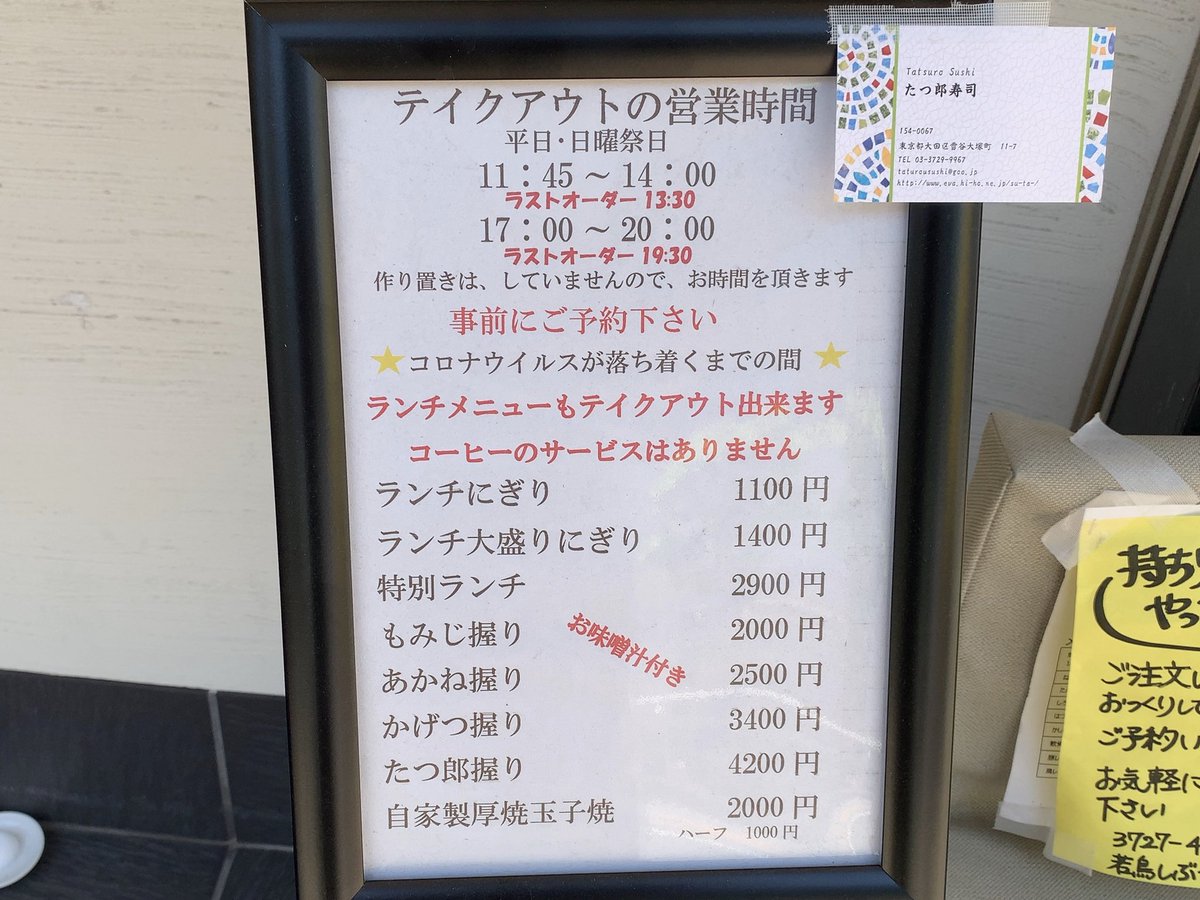 テイクアウトの営業時間
平日・日曜祭日
11：45 ～ 14：00
ラストオーダー 13:30
17：00 ～ 20：00
ラストオーダー 19:30
作り置きは、していませんので、お時間を頂きます
事前にご予約下さい
★コロナウイルスが落ち着くまでの間 ★
ランチメニューもテイクアウト出来ます
コーヒーのサービスはありません
ランチにぎり 1100 円
ランチ大盛りにぎり 1400 円
特別ランチ 2900 円
もみじ握り 2000 円
お味噌汁付き
あかね握り 2500 円
かげつ握り 3400 円
たつ郎握り 4200 円
自家製厚焼玉子焼 2000 円
ハーフ 1000 円
Tatsuro Sushi
たつ郎寿司
154-0067
東京都大田区雪谷大塚町 11-7
TEL 03-3729-9967
taturousushi@goo.jp
http://www.eva.hi-ho.ne.jp/su-ta-/
持ち
やっ
ご注文し
おつくりして
ご予約い
お気軽に
下さい
3727-4
若鳥しぶ